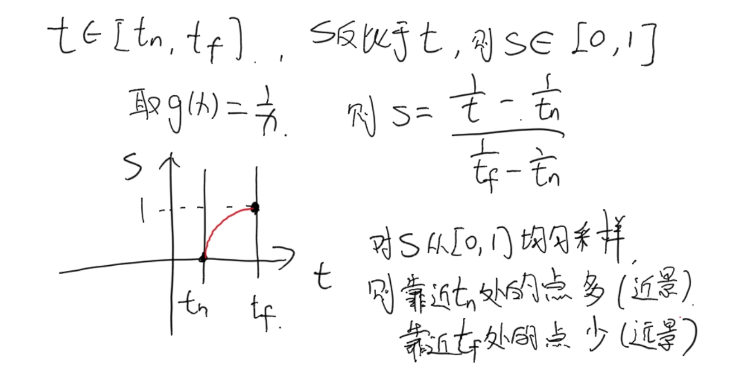 t∈[tn, tf]., S反比于t, 则S∈[0,1]
取g(x)=1/x. 则 S= (1/t - 1/tn) / (1/tf - 1/tn)
S
1
t
tn tf.
对S从[0,1]均匀采样,
则靠近tn处的点多(近景)
靠近tf处的点少(远景)